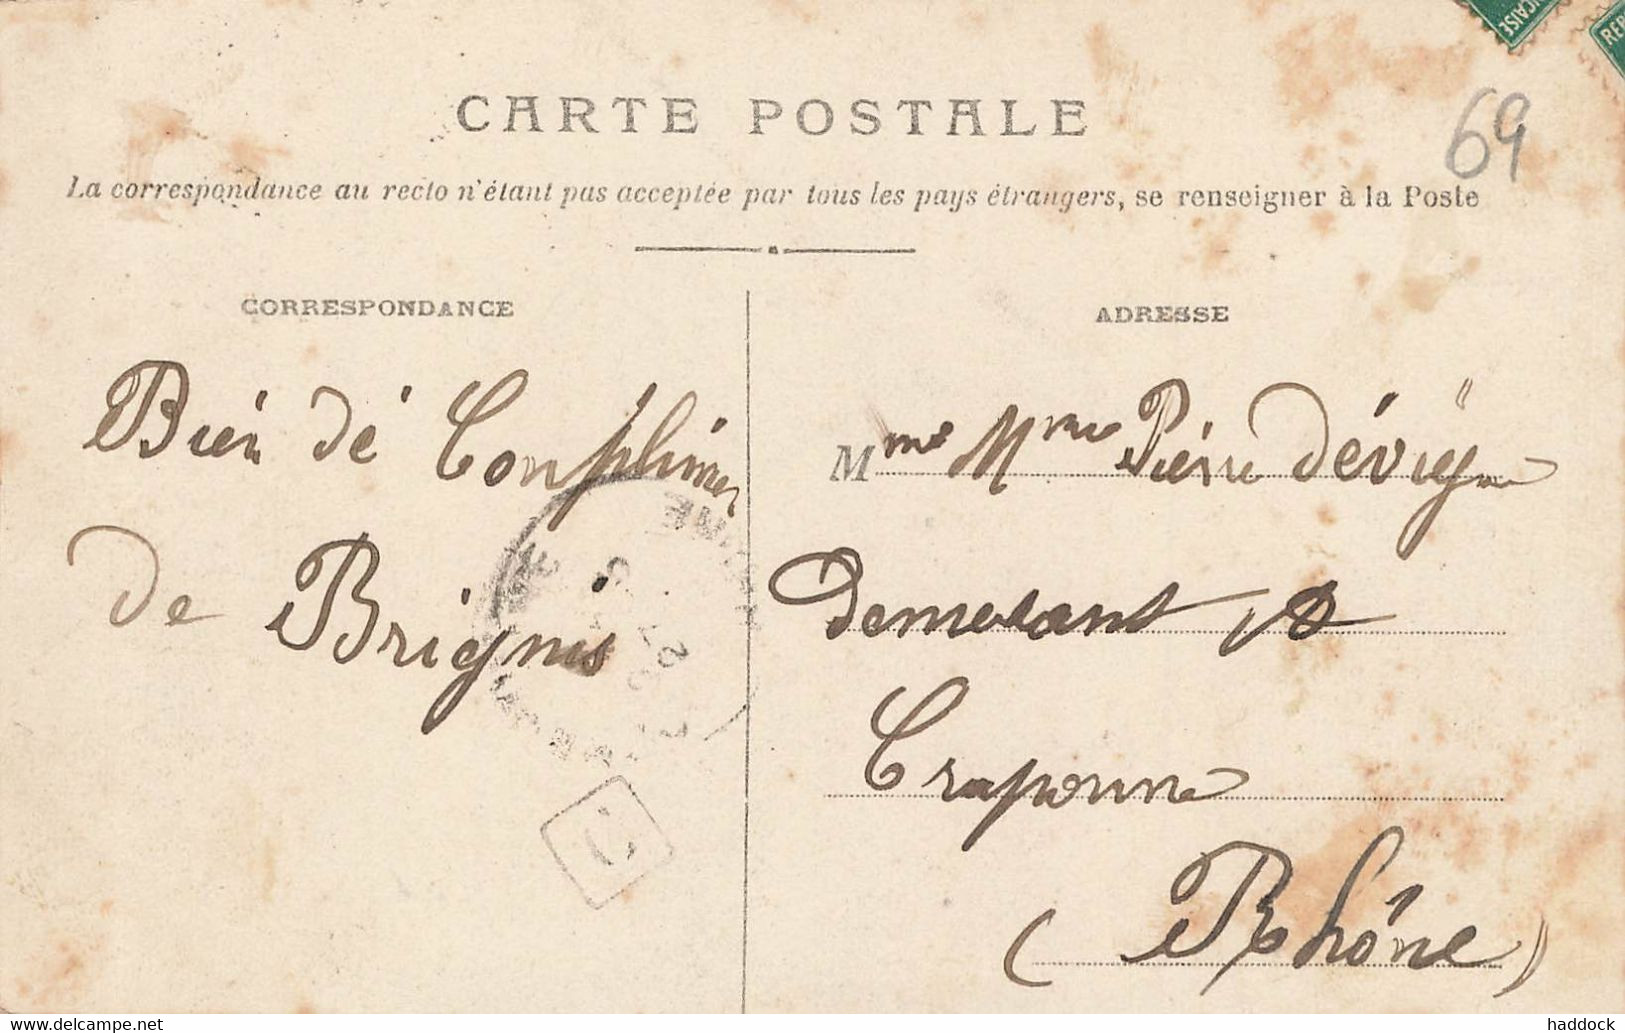 ÇAISE
REP
69
CARTE POSTALE
La correspondance au recto n'étant pas acceptée par tous les pays étrangers, se renseigner à la Poste
CORRESPONDANCE
Bien dé Complimen
de Brignis
C
ADRESSE
Mme Mme Piérre Dévigne
Demeurant à
Craponne
(Rhône)
haddock